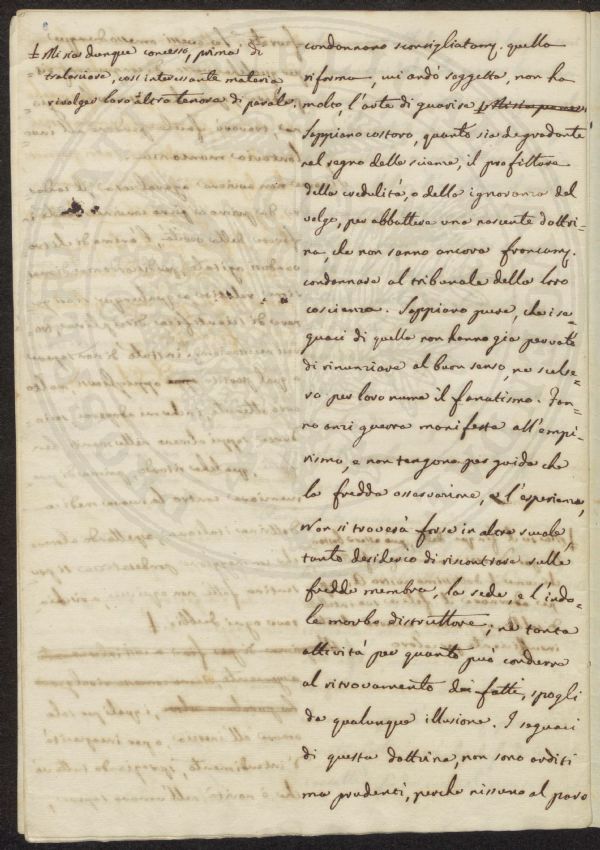 Mi sia dunque concesso, prima di
tralasciare, così interessante materia
rivolger loro altro tenore di parole.
condannano sconsigliatam. quella
riforma, cui andò soggetta, non ha
molto, l'arte di guarire
Sappiano costoro, quanto sia degradante
nel regno delle scienze, il profittare
della credulità, o della ignoranza del
volgo, per abbattere una nascente dottri-
na, che non sanno ancora francam.
condannare al tribunale della loro
coscienza. Sappiano pure, che i se-
guaci di quella non hanno già pensato
di rinunziare al buon senso, ne
per loro nume il fanatismo. Fan-
no anzi guerra manifesta all'empi-
rismo, e non tengono per guida che
la fredda osservazione, e l'esperienza,
Non si troverà forse in altre scuole,
tanto desiderio di riscontrare sulle
fredde membra, la sede, e l'indo-
le morbo distruttore; nè tanta
attività per quanto può condurre
al ritrovamento di fatti, spogli
da qualunque illusione. I seguaci
di questa dottrina, non sono arditi
ma prudenti, perchè nissuno al paro